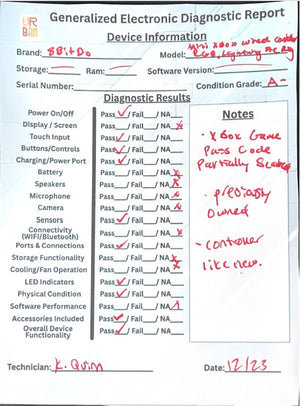 UR
BAN
Generalized Electronic Diagnostic Report
Device Information
Brand: 8BitDo
Model: Mini XBOX wired
Storage: Ram: Software Version:
Serial Number: Condition Grade: A-
Diagnostic Results
Power On/Off Pass ✓/ Fail / NA
Display / Screen Pass / Fail / NA x
Touch Input Pass ✓/ Fail / NA
Buttons/Controls Pass ✓/ Fail / NA
Charging/Power Port Pass ✓/ Fail / NA
Battery Pass / Fail / NA x
Speakers Pass / Fail / NA x
Microphone Pass / Fail / NA x
Camera Pass / Fail / NA x
Sensors Pass ✓/ Fail / NA
Connectivity (WIFI/Bluetooth) Pass / Fail / NA x
Ports & Connections Pass ✓/ Fail / NA
Storage Functionality Pass / Fail / NA x
Cooling/Fan Operation Pass / Fail / NA x
LED Indicators Pass ✓/ Fail / NA
Physical Condition Pass ✓/ Fail / NA
Software Performance Pass / Fail / NA x
Accessories Included Pass ✓/ Fail / NA
Overall Device Functionality Pass ✓/ Fail / NA
Notes
· XBox Game
Pass Code
Partially
· previously
owned
- controller
like new.
Technician: K. Quinn
Date: 12/23